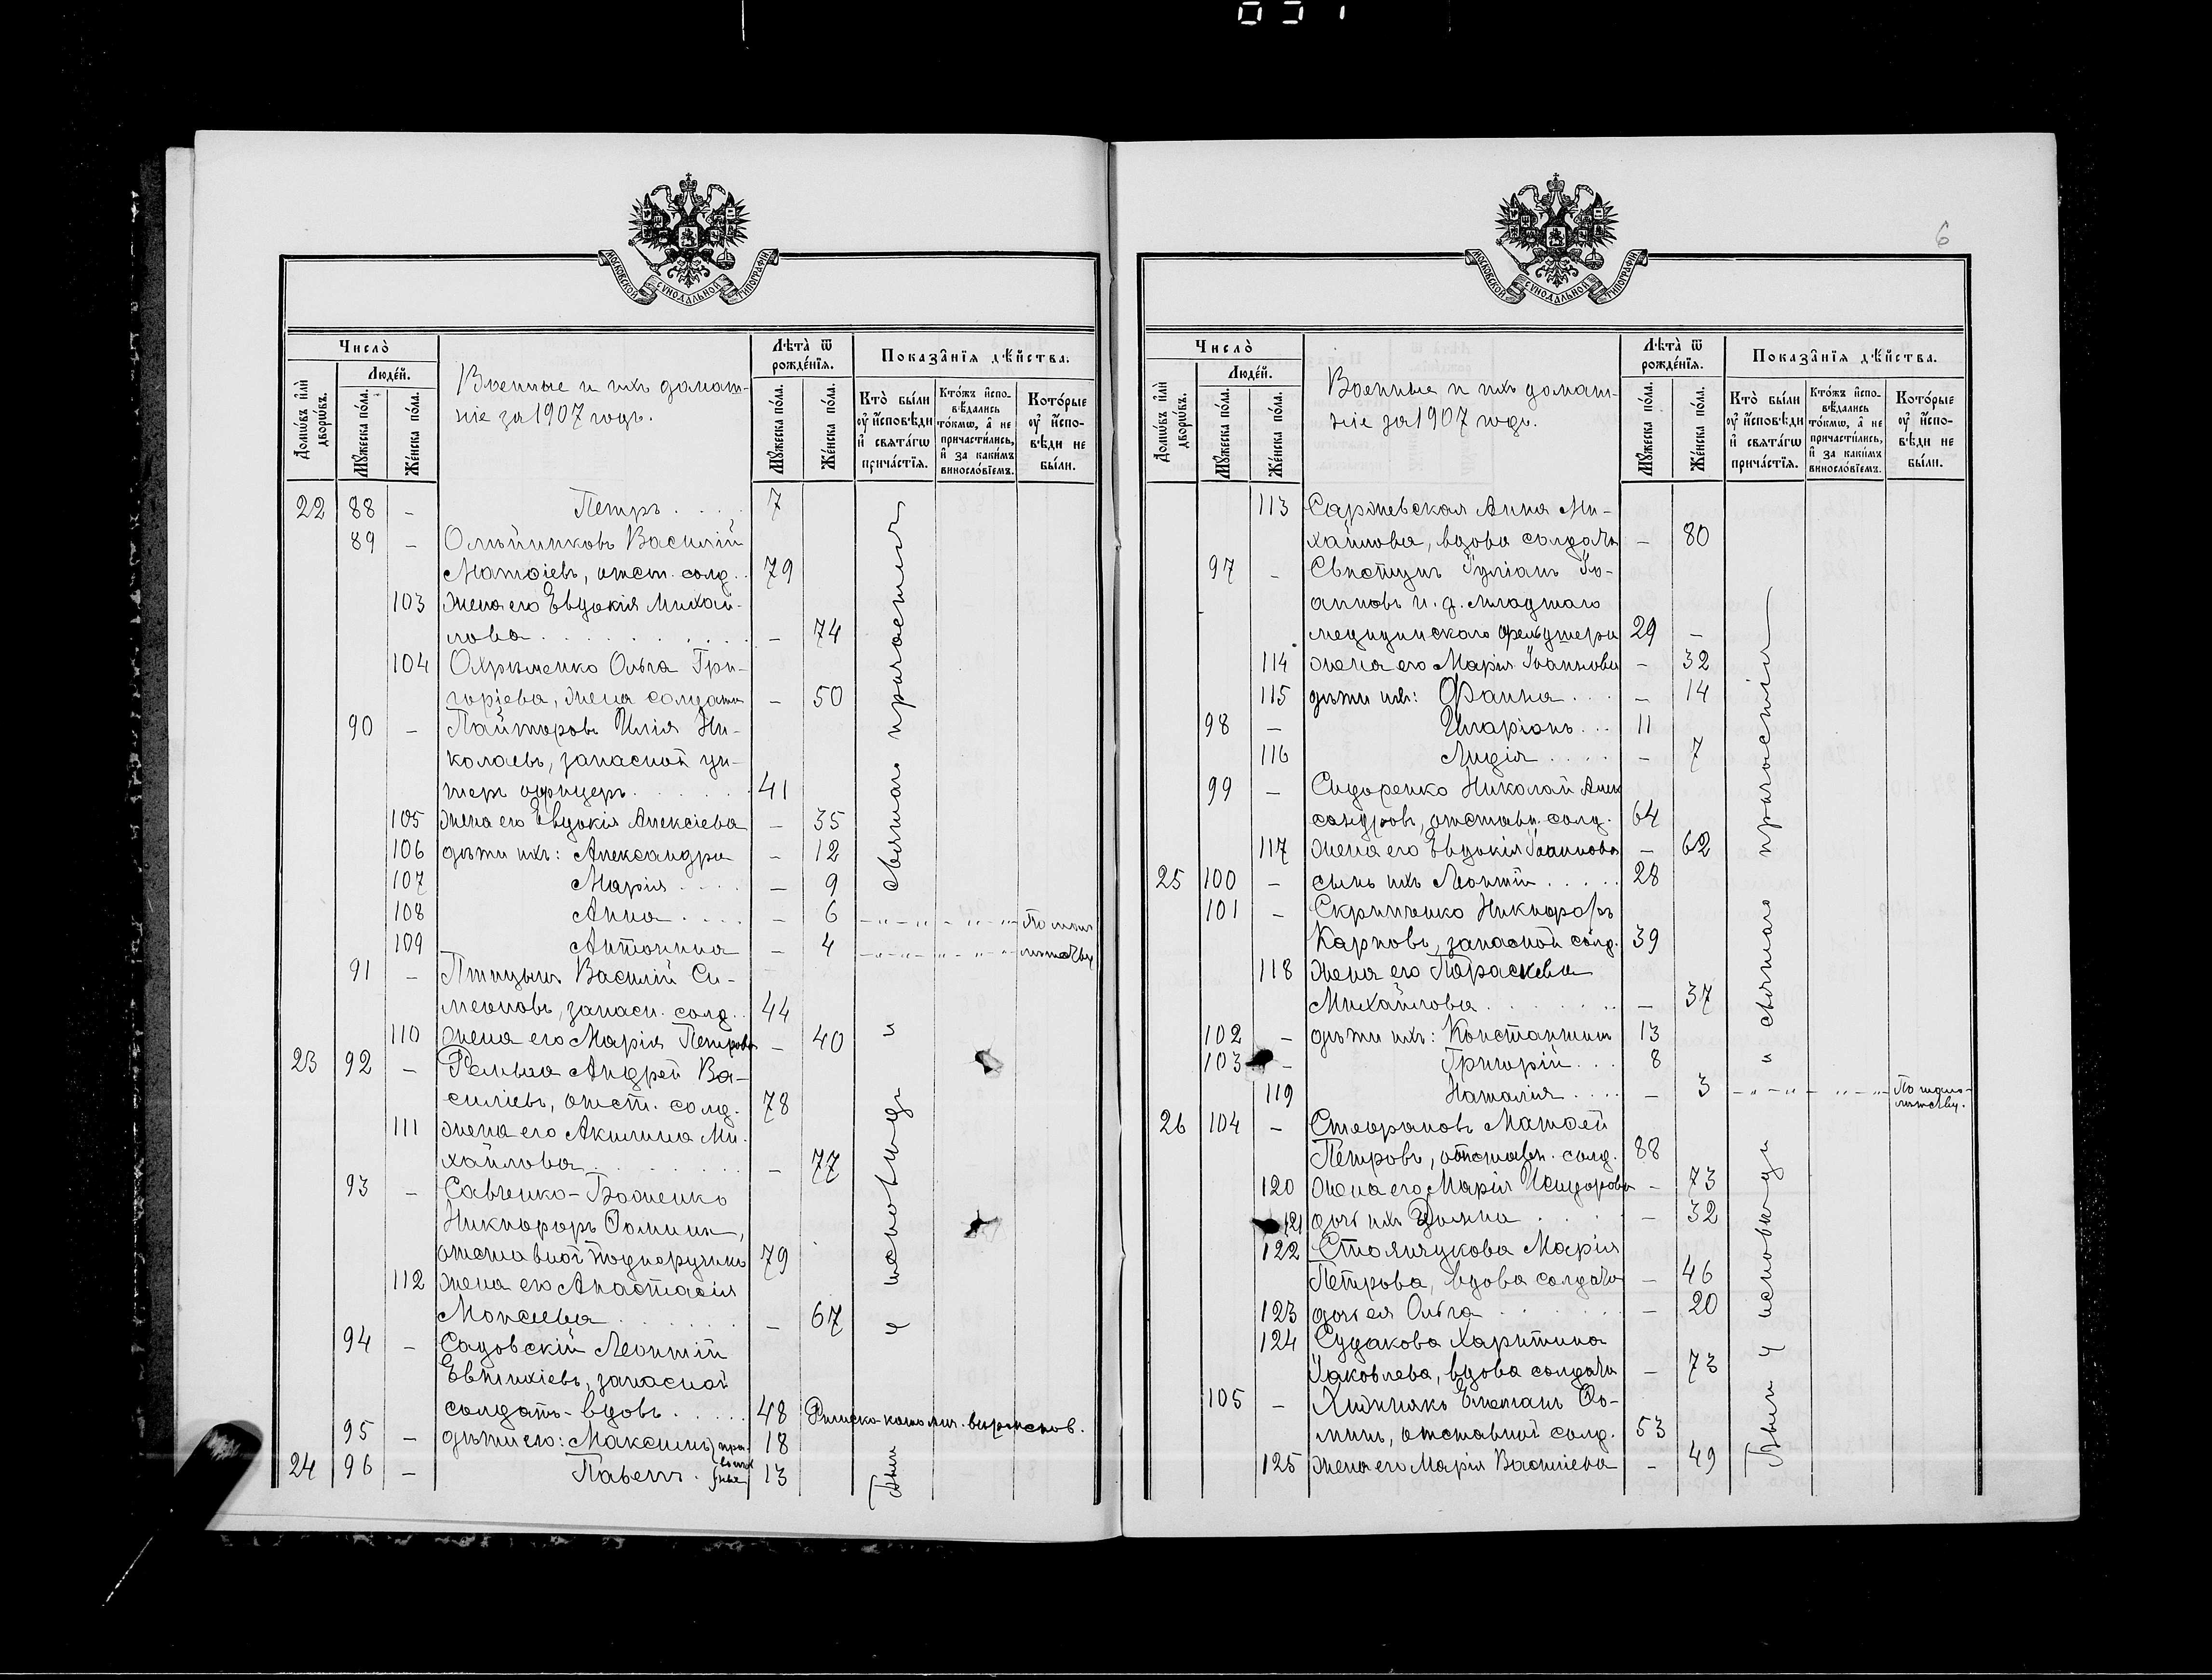 МОСКОВСКОЙ СѴНОДАЛЬНОЙ ТИПОГРАФІИ
Число̀
Люде́й.
Домѡ́въ и҆лѝ дворѡ́въ.
Мꙋ́жеска по́ла.
Же́нска по́ла.
Военные и ихъ домаш-
ніе за 1907 годъ.
Лѣ́та ѿ рожде́нїѧ.
Мꙋ́жеска по́ла.
Же́нска по́ла.
Показа̑нїѧ дѣ́йства.
Кто̀ бы́ли ᲂу҆ и҆́сповѣди и҆ свѧта́гѡ прича́стїѧ.
Кто́жъ и҆спо-
вѣ́дались то́кмѡ, а҆ не причасти́лись, и҆ за каки́мъ винослові́емъ.
Кото́рые ᲂу҆ и҆́спо-
вѣди не бы́ли.
22 88 - Петръ . . . . 7
89 - Олѣйниковъ Василій
Матѳіевъ, отст. солд. . 79
103 жена его Евдокія Михай-
лова . . . . . . . . - 74
104 Охрименко Ольга Гри-
горіева, жена солдата - 50
90 - Пайторовъ Илія Ни-
колаевъ, запасной ун-
теръ офицеръ . . . . . . 41
105 жена его Евдокія Алексіева - 35
106 дѣти ихъ: Александра - 12
107 Марія . . . . - 9
108 Анна . . . . - 6 -„-„- „-„- По мало-
109 Антонина - 4 -„-„- „-„- лѣтству
91 - Птицынъ Василій Си-
меоновъ, запасн. солд. . 44
110 жена его Марія Петрова - 40
23 92 - Андрей Ва-
силіевъ, отст. солд. 78
111 жена его Акилина Ми-
хайлова . . . . . . . - 77
93 - Савченко-Боженко
Никифоръ Ѳоминъ,
отставной подпоручикъ 79
112 жена его Анастасія
Моисеева . . . . . . - 67
94 - Садовскій Леонтій
Евтихіевъ, запасной
солдатъ - вдовъ . . . . . 48 Римско-католич. вѣроисповѣд.
95 - дѣти его: Максимъ } пра- 18
24 96 - Павелъ . } вослав-
ные 13
Были у исповѣди и святаго причастія
6
МОСКОВСКОЙ СѴНОДАЛЬНОЙ ТИПОГРАФІИ
Число̀
Люде́й.
Домѡ́въ и҆лѝ дворѡ́въ.
Мꙋ́жеска по́ла.
Же́нска по́ла.
Военные и ихъ домаш-
ніе за 1907 годъ.
Лѣ́та ѿ рожде́нїѧ.
Мꙋ́жеска по́ла.
Же́нска по́ла.
Показа̑нїѧ дѣ́йства.
Кто̀ бы́ли ᲂу҆ и҆́сповѣди и҆ свѧта́гѡ прича́стїѧ.
Кто́жъ и҆спо-
вѣ́дались то́кмѡ, а҆ не причасти́лись, и҆ за каки́мъ винослові́емъ.
Кото́рые ᲂу҆ и҆́спо-
вѣди не бы́ли.
113 Саржевская Анна Ми-
хайлова, вдова солдата - 80
97 - Свистунъ Іуліанъ Іо-
анновъ и. д. младшаго
медицинскаго фельдшера 29 -
114 жена его Марія Іоаннова - 32
115 дѣти ихъ: Фаина . . . - 14
98 - Иларіонъ . . . 11
116 Лидія . . . . - 7
99 - Сидоренко Николай Алек
сандровъ, отставн. солд. 64
117 жена его Евдокія Іоаннова - 62
25 100 - сынъ ихъ Леонтій . . . . . 28
101 - Скрипченко Никифоръ
Карповъ, запасной солд. 39
118 жена его Параскева
Михайлова . . . . . . . - 37
102 - дѣти ихъ: Константинъ 13
103 - Григорій . . . 8
119 Наталія . . . . - 3 -„-„- „-„- По мало-
лѣтству.
26 104 - Стефановъ Матѳей
Петровъ, отставн. солд. 88
120 жена его Марія Исидорова - 73
121 дочь ихъ Домна . . . . - 32
122 Столянукова Марія
Петрова, вдова солдата - 46
123 дочь ея Ольга . . . . . . - 20
124 Судакова Харитина
Іаковлева, вдова солдата - 73
105 - Хижнякъ Ѳо-
минъ, отставной солд. 53
125 жена его Марія Василіева - 49
Были у исповѣди и святаго причастія